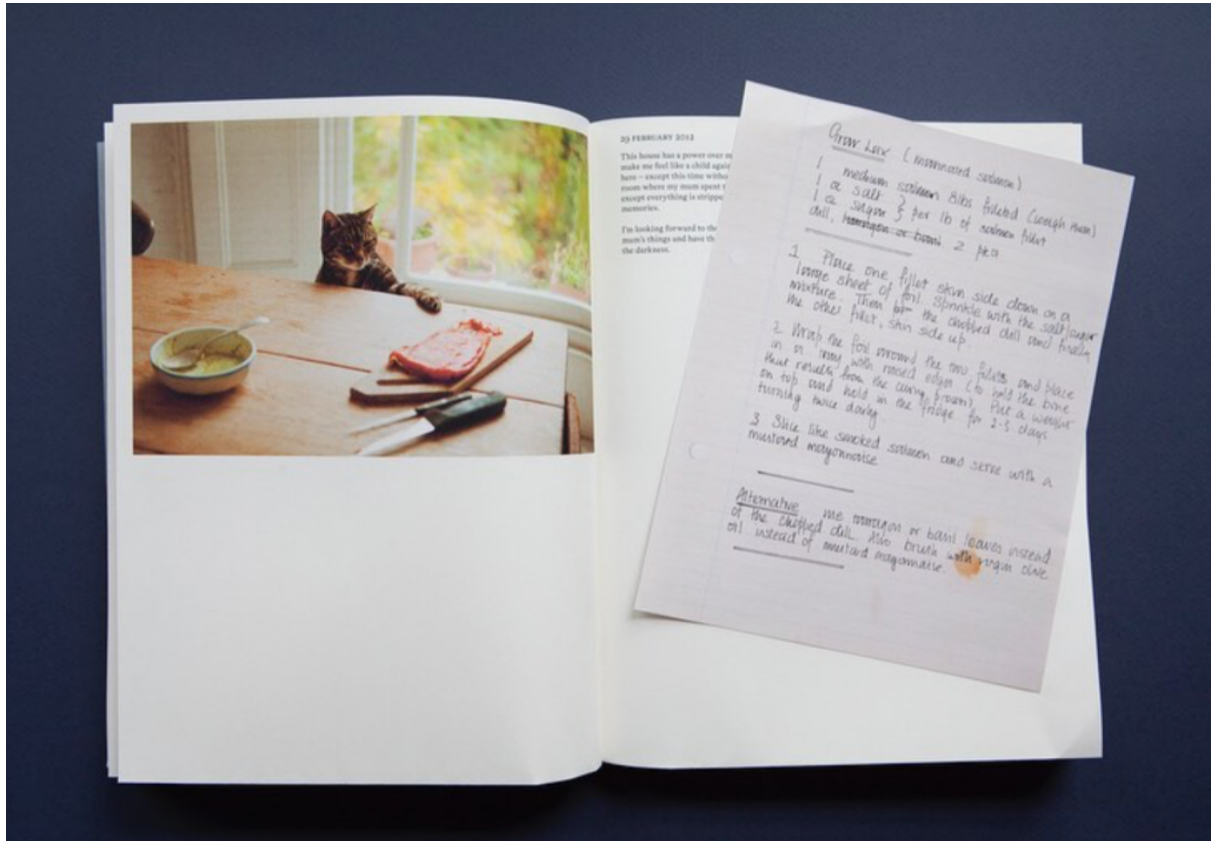 29 FEBRUARY 2012
This house has a power over
make me feel like a child again
here – except this time witho
room where my mum spent
except everything is stripped
memories.
I'm looking forward to the
mum's things and have th
the darkness.
Lax (marinated salmon)
1 medium salmon 8lbs filleted (weigh them)
1 oz salt }
1 oz sugar } per lb of salmon fillet
dill, tarragon or basil 2 pkts
1 Place one fillet skin side down on a
large sheet of foil. Sprinkle with the salt/sugar
mixture. Then the chopped dill and finally
the other fillet, skin side up.
2 Wrap the foil around the two fillets and place
in a tray with raised edges (to hold the brine
that results from the curing process). Put a weight
on top and hold in the fridge for 2-3 days
turning twice daily.
3 Slice like smoked salmon and serve with a
mustard mayonnaise
Alternative use tarragon or basil leaves instead
of the chopped dill. Also brush with virgin olive
oil instead of mustard mayonnaise.